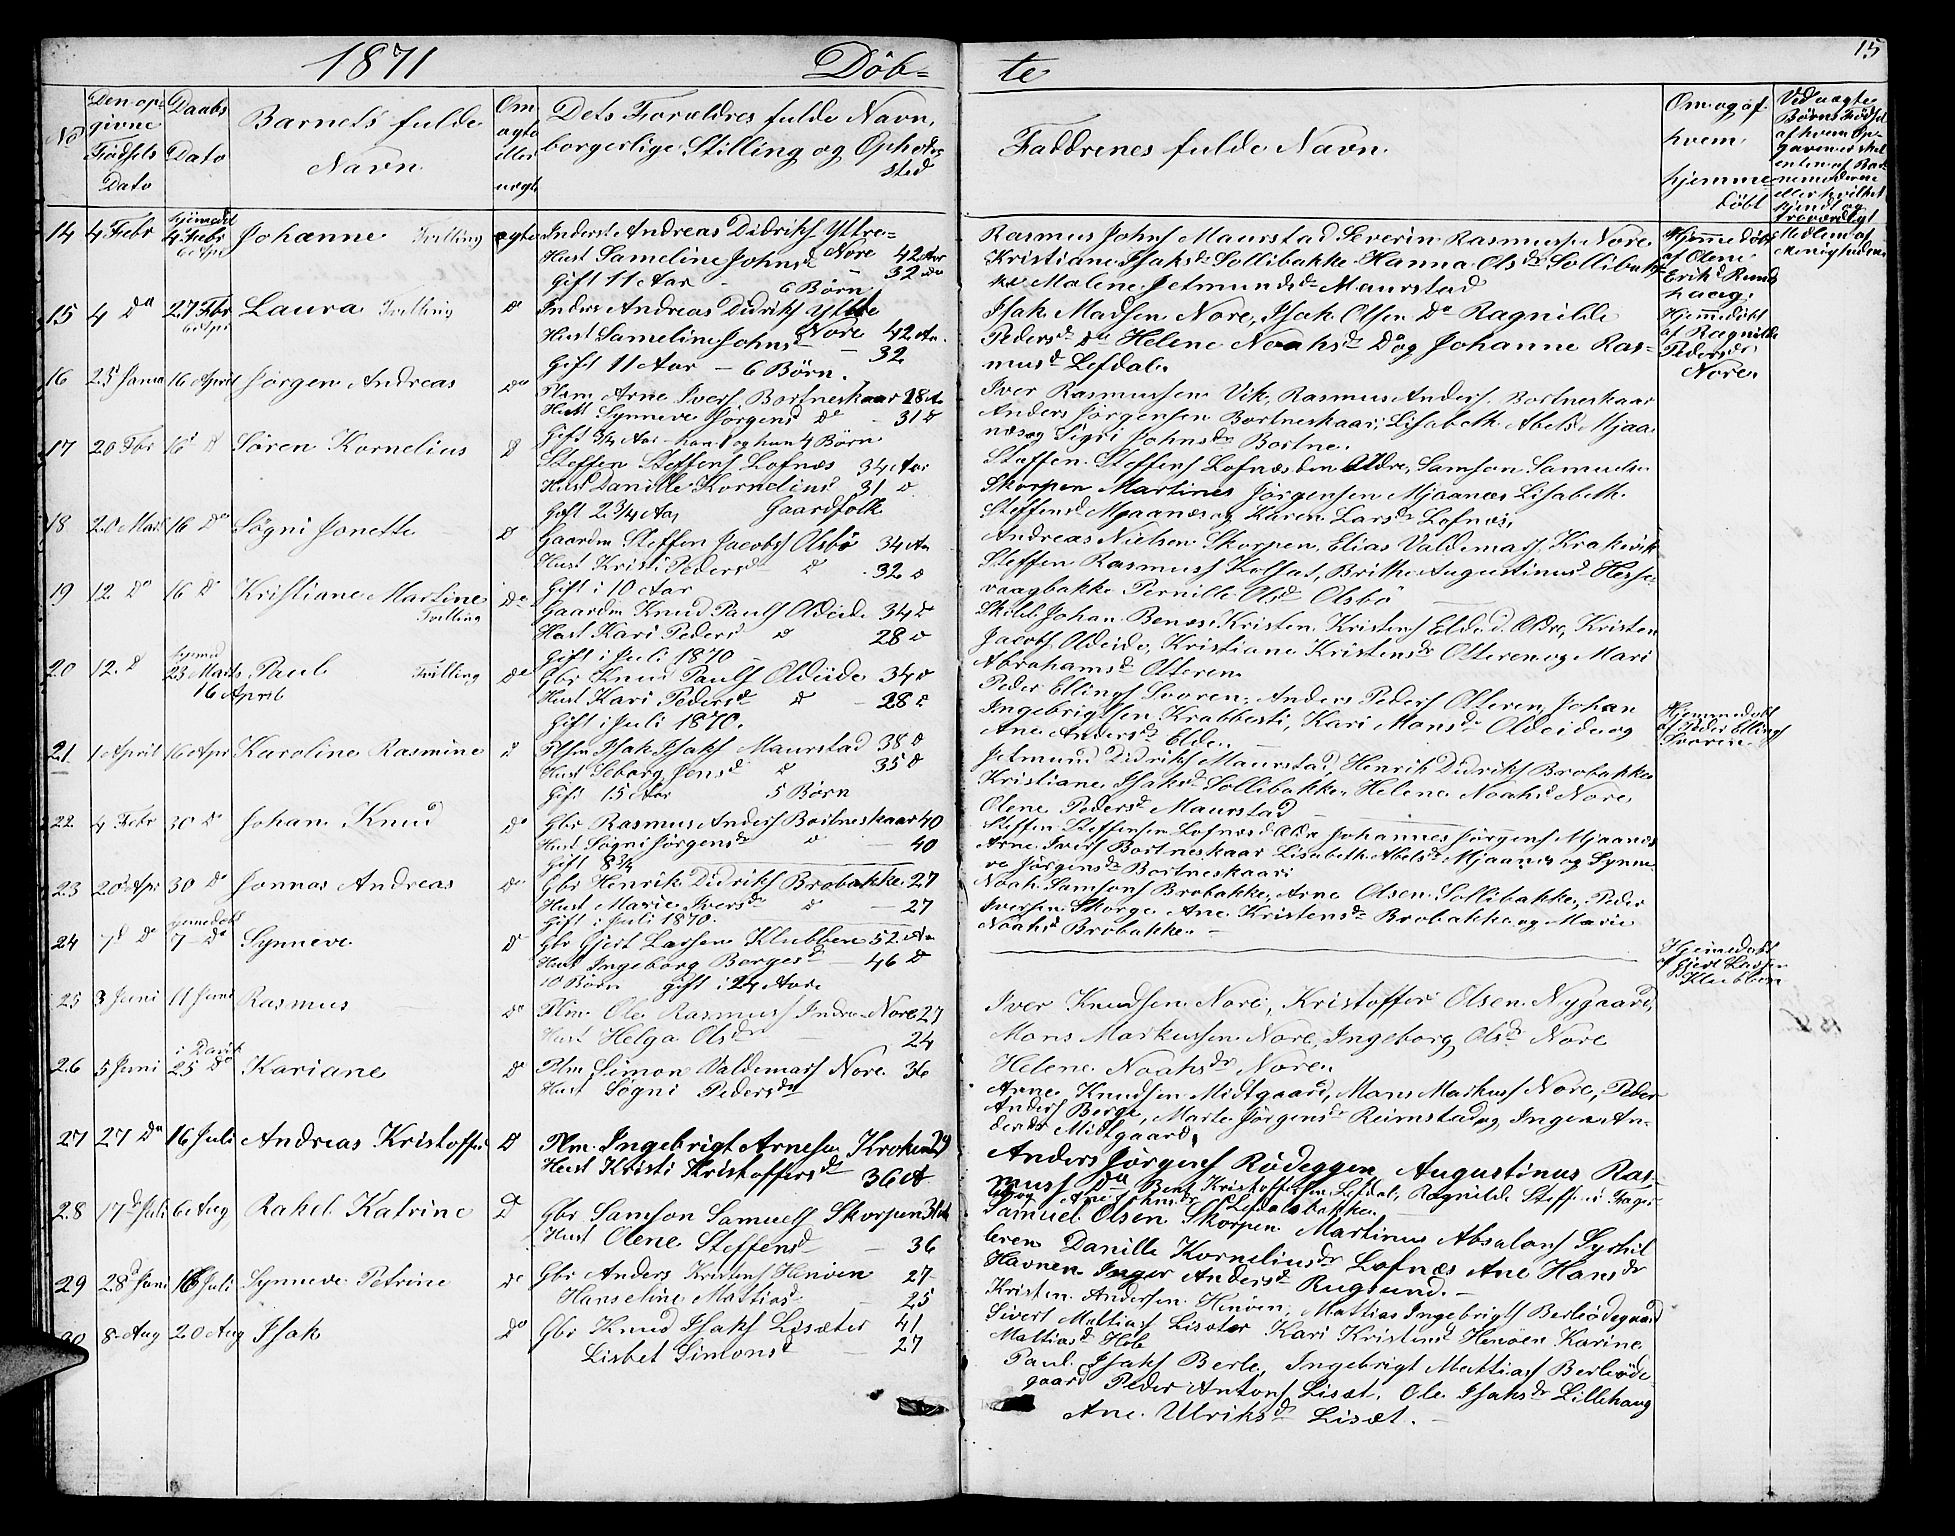 1871 Döb= te 15
No
Den op=
givne
Fødsels
Dato
Daabs
Dato
Barnets fulde
Navn
Om
ægte
eller
uægte
Dets Forældres fulde Navn,
borgerlige Stilling og Opholds
sted
Faddrenes fulde Navn.
Om og af
hvem
hjemme=
døbt
14 4 Febr hjemedøbt 4 Febr Johanne Tvilling ægte
Inderst Andreas Didrikſ Yttre=
Nore 42 Aar
Hust Sameline Johnsd 32 do
Gift 11 Aar - 6 Börn
Rasmus Johnſ Maurstad Severin Rasmusſ. Nore
Kristiane Iſaksdr Sollibakke Hanna Olsdr Sollibak=
ke Malene Jetmundsdr Maurstad
Hjemme døbt
af Olene
15 4 Do 27 Fbr Laura Tvilling Do
Inderst Andreas Didrikſ Yttre
Nore 42 Aar
Hust Sameline Johnsd - 32
Gift 11 Aar - 6 Börn.
Iſak Madsen Nore, Iſak Olsen Do Ragnilde
Pedersd Do Helene Noahsdr Do og Johanne Ras=
musd Lefdal.
Hjemdøbt
af Ragnilde
Pedersdr
Nore
16 25 Janu 16 April Jørgen Andreas Do
Plsm Arne Iverſ Bortneskaar 28 A
Hust Synneve Jørgensd Do - 31 Do
Gift 3/4 Aar - han 1 og hun 4 Börn
Iver Rasmussen Vik, Rasmus Anderſ. Bortneskaar
Anders Jørgensen Bortneskaar, Lisabeth Abelsd Mjaa
næs og Sigri Johnsdr Bortne.
17 20 Fbr 16 D Søren Kornelius D
Steffen Steffenſ Lofnæs 34 Aar
Hust Danille Kornelius 31 D
Gift 2 3/4 Aar Gaardfolk
Steffen Steffenſ Lofnæs den Ældre, Samson Samuelsen
Skorpen Martines Jørgensen Mjaanæs Lisabeth
Steffensd Mjaanæs og Karen Larsdr Lofnæs,
18 20 Mart 16 Do Søgni Jonette D
Gaardm Steffen Jacobſ Olsbö 34 Aar
Hust Kristi Pedersd D 32 D
Gift i 10 Aar
Andreas Nielsen Skorpen, Elias Valdemarſ, Krakevik
Steffen Rasmusſ Kolset, Brithe Augustinusd Hesse=
vaagbakke Pernille Olsd Olsbö
19 12 Do 16 D Kristiane Martine Tvilling Do
Gaardm Knud Paulſ Oldeide 34 D
Hust Kari Pedersd D 28 D
Gift i Juli 1870
Johan Kristen Kristenſ Elde d. Ældre, Kristen
Jacobſ Oldeide, Kristiane Kristensdr Otteren og Mari
Abrahamsdr Otteren
20 12. D 23 Marts 16 April Paul Tvilling Do
Gbr Knud Paulſ Oldeide 34 D
Hust Kari Pedersd D - 28 D
Gift i Juli 1870.
Peder Ellingſ Svoren, Anders Pederſ Otteren, Johan
Ingebrigtsen Krabbesti, Kari Monsdr Oldeide og
Ane Andersdr Elde.
Hjemmedøbt
af Peder Ellingſ
Svoren
21 1 April 16 Apr Karoline Rasmine D
Plsm Iſak Iſakſ Maurstad 38 D
Hust Seborg Jensd D 35 D
Gift 15 Aar 5 Börn
Jetmund Didrikſ Maurstad, Henrik Didrikſ Brobakke
Kristiane Iſaksdr Sollibakke, Helene Noahsd Nore,
Olene Pedersdr Maurstad
22 4 Febr 30 Do Johan Knud Do
Gbr Rasmus Anderſ Bortneskaar 40
Hust Søgni Jørgensdr D - 40
Gift 8 3/4
Steffen Steffensen Lofnæs d Ældre Johannes Jørgenſ Mjaanæs
Arne Iverſ Bortneskaar Lisabeth Abelsdr Mjaanæs og Synne
ve Jørgensdr Bortneskaar
23 20 Apr 30 Do Jonnas Andreas Do
Gbr Henrik Didrikſ Brobakke 27
Hust Marie Iversdr D - 27
Gift i Juli 1870.
Noah Samsonſ Brobakke, Arne Olsen Sollibakke, Peder
Iversen Skorge Ane Kristensdr Brobakke og Marie
Noahsd Brobakke.
24 7d Do hjemedøbt 7 Do Synneve D
Gbr Gjert Larsen Klubben 52 Aar
Hust Ingeborg Borgesd - 46 D
10 Börn gift i 24 Aar
Hjemedøbt
af Gjert Larsen
Klubben
25 3 Juni 11 Juni Rasmus Do
Plm Ole Rasmusſ Indre-Nore 27
Hust Helga Olsdr - 24
Iver Knudsen Nore, Kristoffer Olsen Nygaard,
Mons Markussen Nore, Ingeborg Olsdr Nore
Helene Noahsdr Nore
26 5 Juni i Davik 25 Do Kariane D
Plm Simon Valdemarſ Nore 36
Hust Søgni Pedersdr
Arne Knudsen Midtgaard, Mons Markusſ Nore, Peder
Anderſ Berge, Marte Jørgensdr Reimstad og Inger An=
dersdr Midtgaard,
27 27 Do 16 Juli Andreas Kristoffer D
Plm Ingebrigt Arnesen Kroken 29
Hust Kristi Kristoffersdr 36 A
Anders Jørgenſ Rödeggen Augustinus Ras=
musſ Do Kristoffersen Lefdal, Ragnilde
Lefdalsbakke
28 17d Juli 6 Aug Rakel Katrine D
Gbr Samson Samuelſ Skorpen
Hust Olene Steffensd - 36
Samuel Olsen Skorpen Martinus Absalonſ
Danille Korneliusdr Lofnæs Ane Hansdr
Havnen Inger Andersdr Rugsund.
29 28 Juni 16 Juli Synneve Petrine Do
Gbr Anders Kristenſ Henöen 27
Hanseline Mattiasd - 25
Kristen Andersen Henöen, Mattias Ingebrigtſ Berleödegaard
Sivert Mattiasſ Lisæter Kari Kristensd Henöen Karine
Mattiasd Hole
30 8 Aug 20 Aug Iſak Do
Gbr Knud Iſakſ Lisæter 41
Lisbet Simonsd - 27
Paul Iſakſ Berle, Ingebrigt Mattiasſ Berleöde=
gaard Peder Antonſ Lisæt. Ole Iſaksdr Lillehaug
Ane Ulriksdr Lisæt.